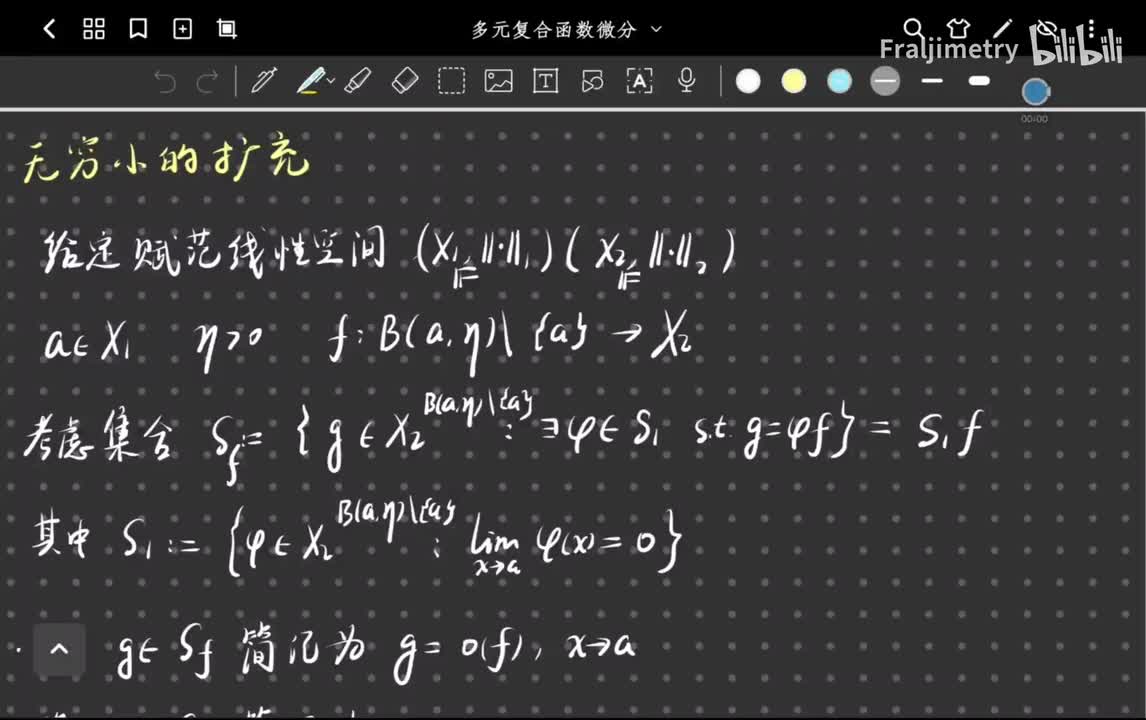 多元复合函数微分
Fraljimetry bilibili
00:00
无穷小的扩充
给定赋范线性空间 (X₁,𝔽, ‖·‖₁) (X₂,𝔽, ‖·‖₂)
a∈X₁ η>0 f: B(a,η)\{a} → X₂
考虑集合 S_f := {g∈X₂^{B(a,η)\{a}} : ∃φ∈S₁ s.t. g=φf} = S₁f
其中 S₁ := {φ∈X₂^{B(a,η)\{a}} : lim_{x→a} φ(x)=0}
g∈S_f 简记为 g=o(f), x→a